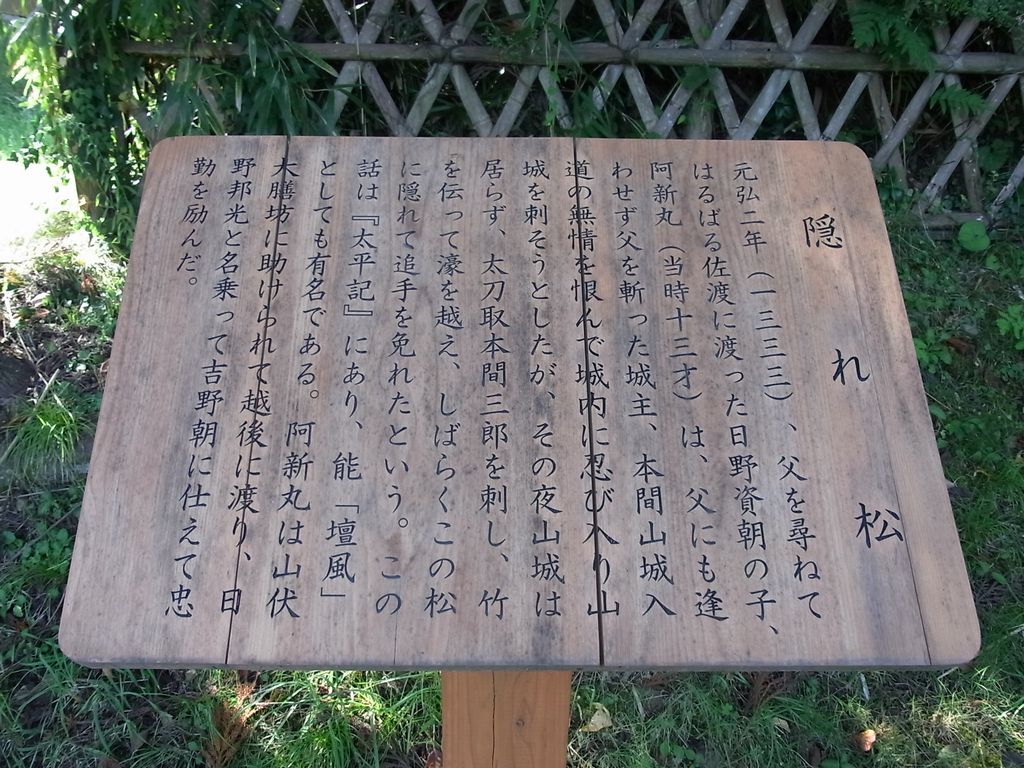 隠れ松
元弘二年（一三三三）、父を尋ねて
はるばる佐渡に渡った日野資朝の子、
阿新丸（当時十三才）は、父にも逢
わせず父を斬った城主、本間山城入
道の無情を恨んで城内に忍び入り山
城を刺そうとしたが、その夜山城は
居らず、太刀取本間三郎を刺し、竹
を伝って濠を越え、しばらくこの松
に隠れて追手を免れたという。この
話は『太平記』にあり、能「壇風」
としても有名である。阿新丸は山伏
大膳坊に助けられて越後に渡り、日
野邦光と名乗って吉野朝に仕えて忠
勤を励んだ。